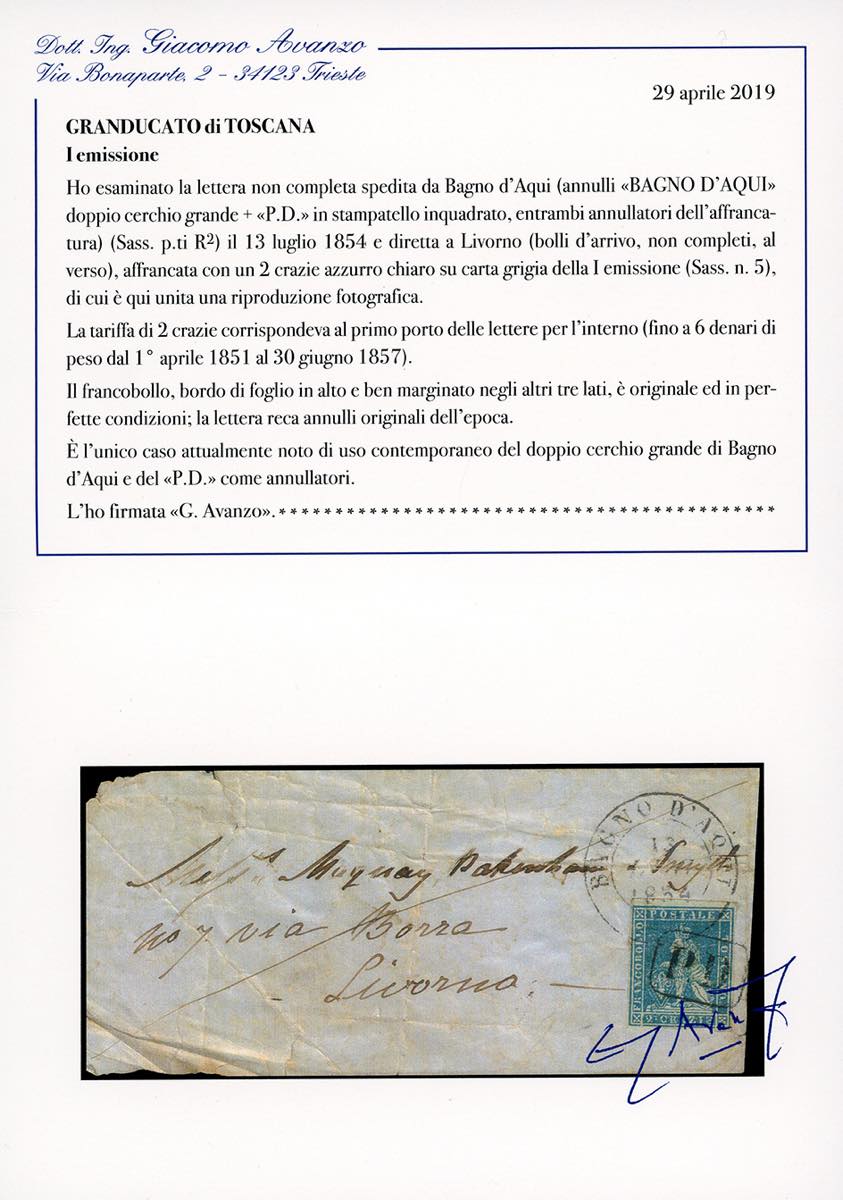 Dott. Ing. Giacomo Avanzo
Via Bonaparte, 2 – 34123 Trieste
29 aprile 2019
GRANDUCATO di TOSCANA
I emissione
Ho esaminato la lettera non completa spedita da Bagno d'Aqui (annulli «BAGNO D'AQUI»
doppio cerchio grande + «P.D.» in stampatello inquadrato, entrambi annullatori dell'affranca-
tura) (Sass. p.ti R²) il 13 luglio 1854 e diretta a Livorno (bolli d'arrivo, non completi, al
verso), affrancata con un 2 crazie azzurro chiaro su carta grigia della I emissione (Sass. n. 5),
di cui è qui unita una riproduzione fotografica.
La tariffa di 2 crazie corrispondeva al primo porto delle lettere per l'interno (fino a 6 denari di
peso dal 1° aprile 1851 al 30 giugno 1857).
Il francobollo, bordo di foglio in alto e ben marginato negli altri tre lati, è originale ed in per-
fette condizioni; la lettera reca annulli originali dell'epoca.
È l'unico caso attualmente noto di uso contemporaneo del doppio cerchio grande di Bagno
d'Aqui e del «P.D.» come annullatori.
L'ho firmata «G. Avanzo». * * * * * * * * * * * * * * * * * * * * * * * * * * * * * * * * * * * * * * * * * * * *
BAGNO D'AQUI
13
1854
Mess.rs Maquay Pakenham & Smyth
no 7 via Borra
Livorno.
FRANCOBOLLO
POSTALE
TOSCANO
2 CRAZIE
P.D.